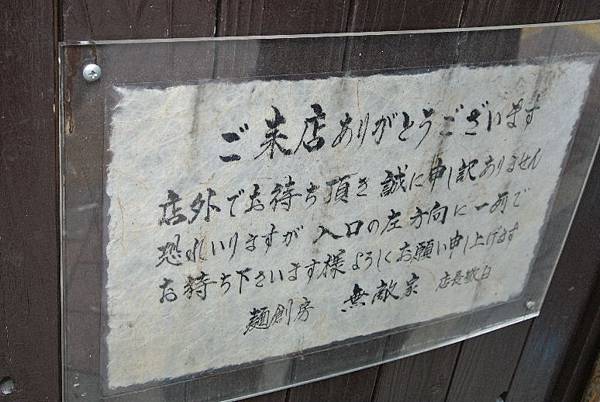 ご来店ありがとうございます
店外でお待ち頂き誠に申し訳ありません
恐れいりますが入口の左方向に一列で
お待ち下さいます様よろしくお願い申し上げます
麺創房 無敵家 店長敬白